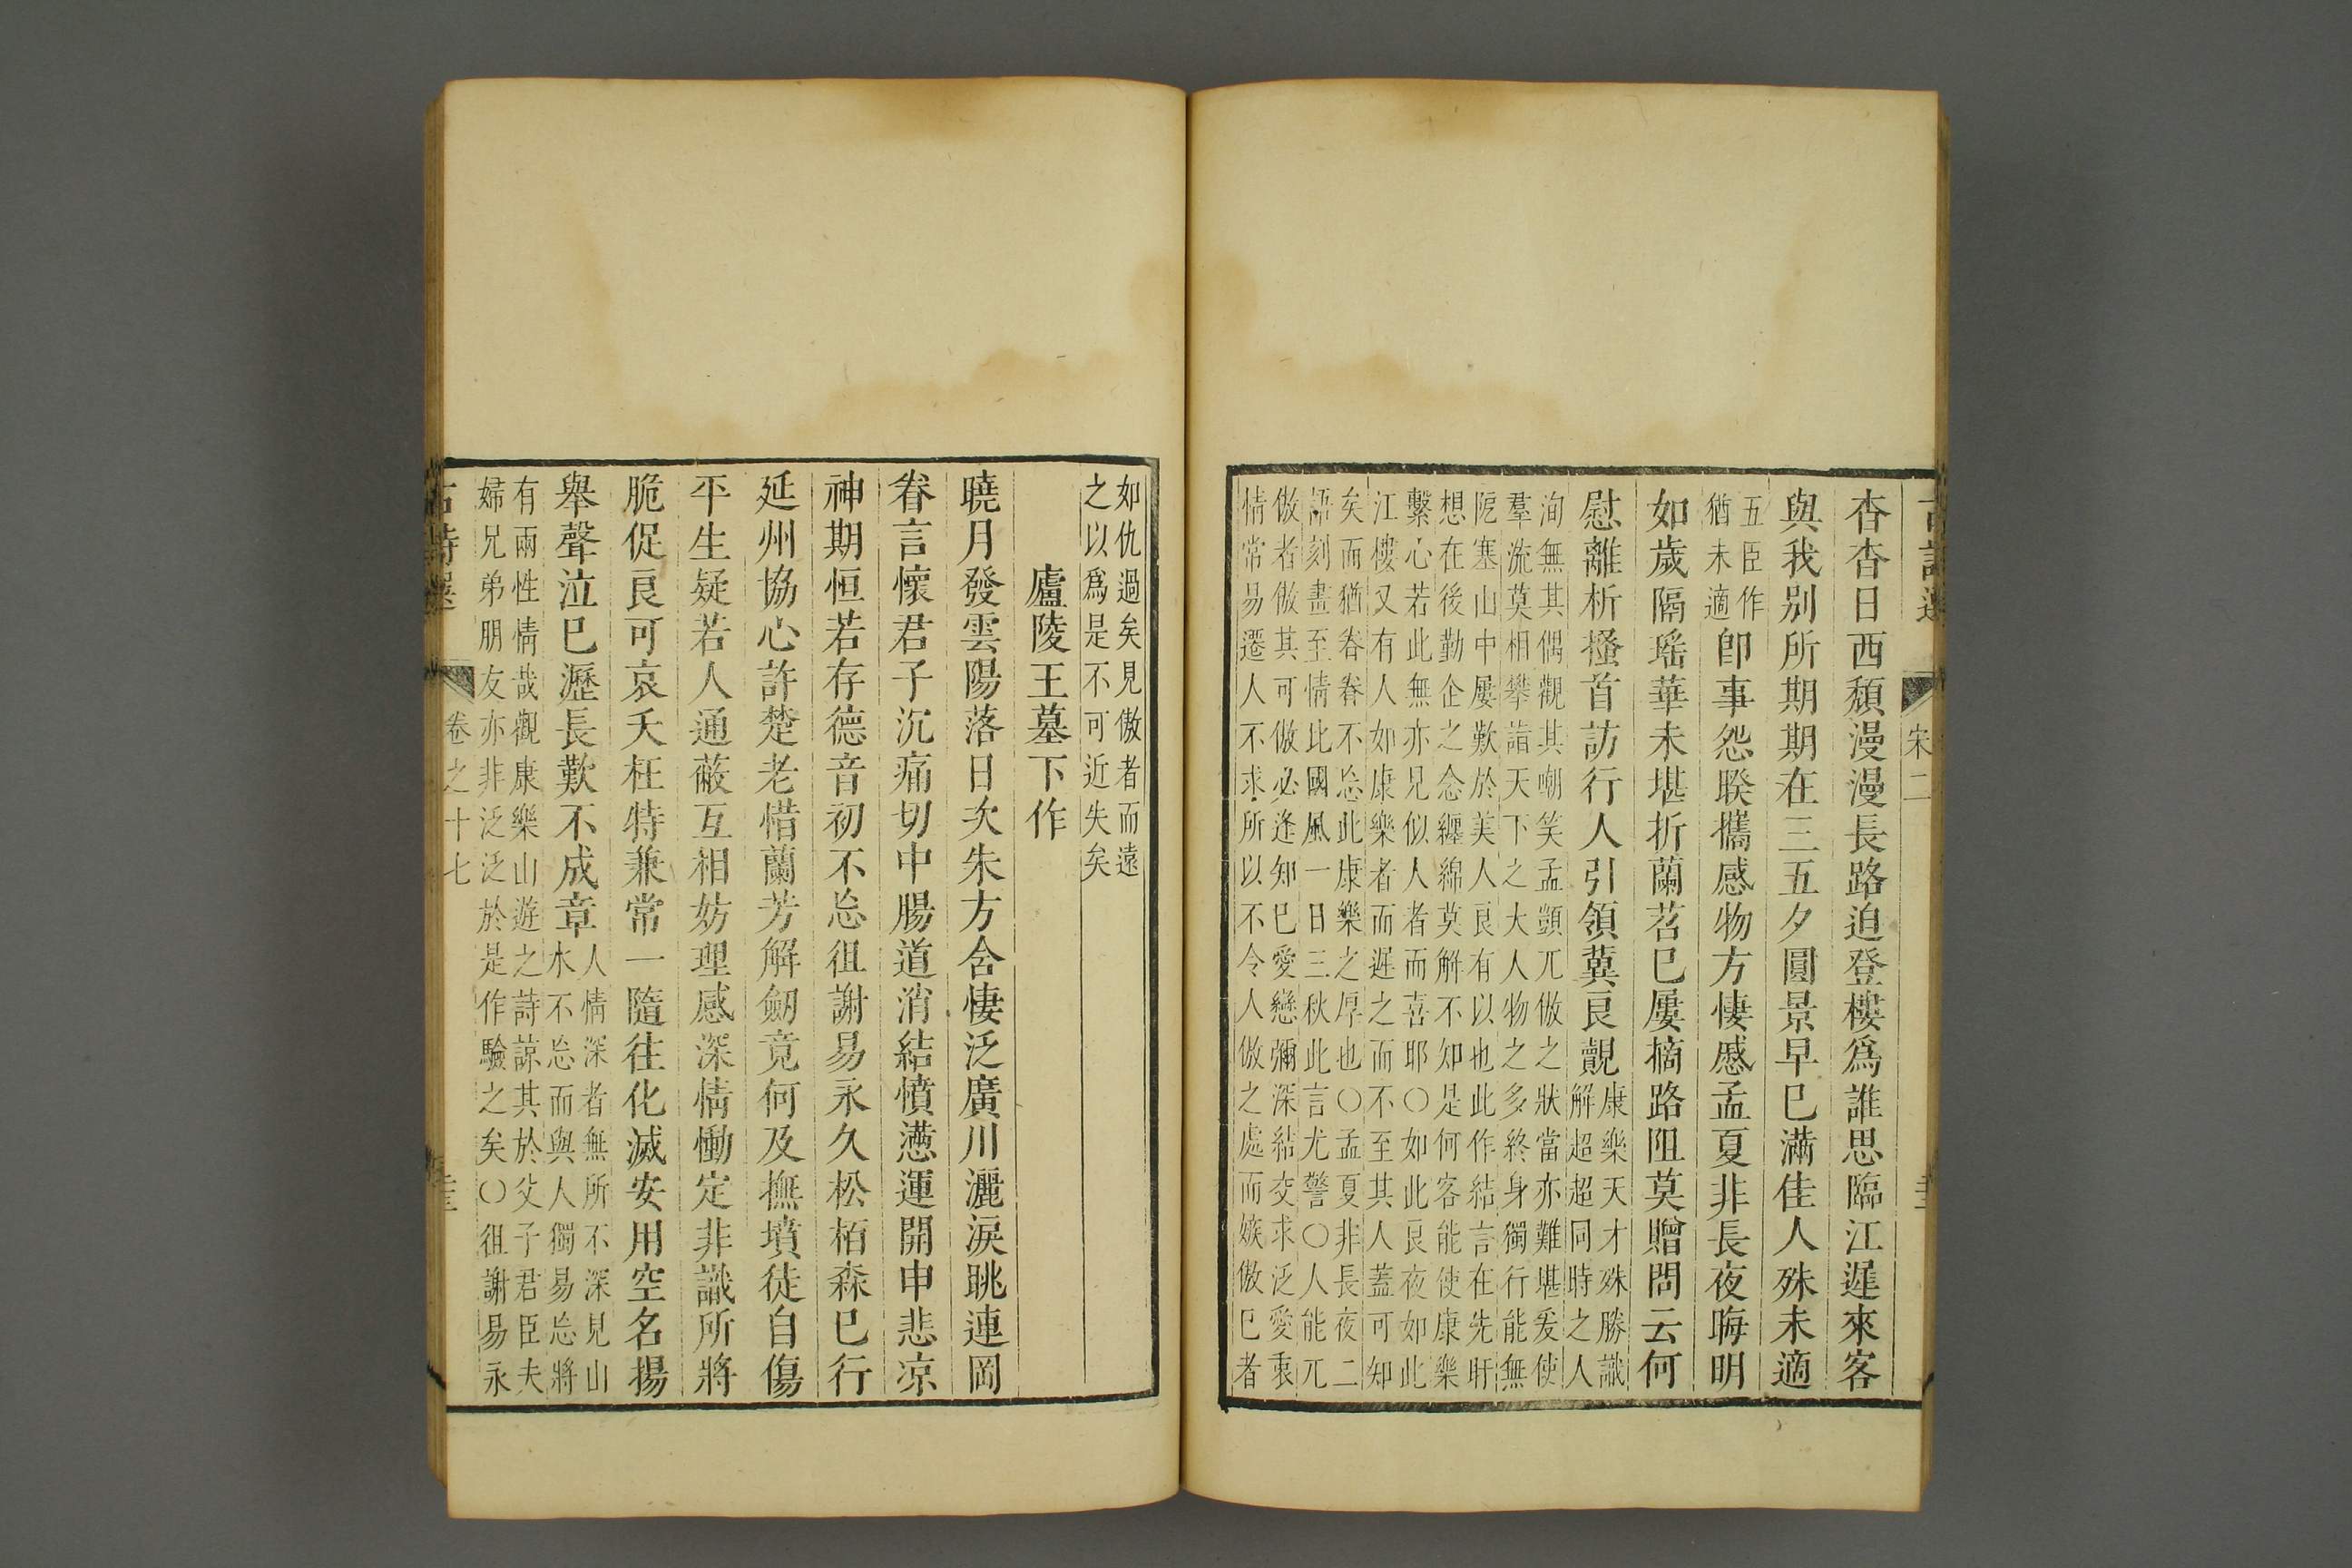 古詩選 宋二
杳杳日西頹漫漫長路迫登樓爲誰思臨江遲來客
與我別所期期在三五夕圓景早巳滿佳人殊未適
五臣作
猶未適
卽事怨睽攜感物方悽慼孟夏非長夜晦明
如歲隔瑤華未堪折蘭苕巳屢摘路阻莫贈問云何
慰離析搔首訪行人引領冀良覿
康樂天才殊勝識
解超超同時之人
洵無其偶觀其嘲笑孟顗兀傲之狀當亦難堪爰使
羣流莫相攀諧天下之大人物之多終身獨行能無
阨塞山中屢歎於美人良有以也此作結言在先旴
想在後勤企之念纏綿莫解不知是何客能使康樂
繫心若此無亦兄似人者而喜耶○如此良夜如此
江樓又有人如康樂者而遲之而不至其人蓋可知
矣而猶眷眷不忘此康樂之厚也○孟夏非長夜二
語刻畫至情比國風一日三秋此言尤警○人能兀
傲者傲其可傲必逢知巳愛戀彌深結交求泛愛衷
情常易遷人不求所以不令人傲之處而嫉傲巳者
如仇過矣見傲者而遠
之以爲是不可近失矣
廬陵王墓下作
曉月發雲陽落日次朱方含悽泛廣川灑淚眺連岡
眷言懷君子沉痛切中腸道消結憤懣運開申悲凉
神期恒若存德音初不忘徂謝易永久松栢森巳行
延州協心許楚老惜蘭芳解劒竟何及撫墳徒自傷
平生疑若人通蔽互相妨理感深情慟定非識所將
脆促良可哀夭枉特兼常一隨往化滅安用空名揚
舉聲泣巳灑長歎不成章
人情深者無所不深見山
水不忘而與人獨易忘將
有兩性情哉觀康樂山遊之詩諒其於父子君臣夫
婦兄弟朋友亦非泛泛於是作驗之矣○徂謝易永
古詩選 卷之十七